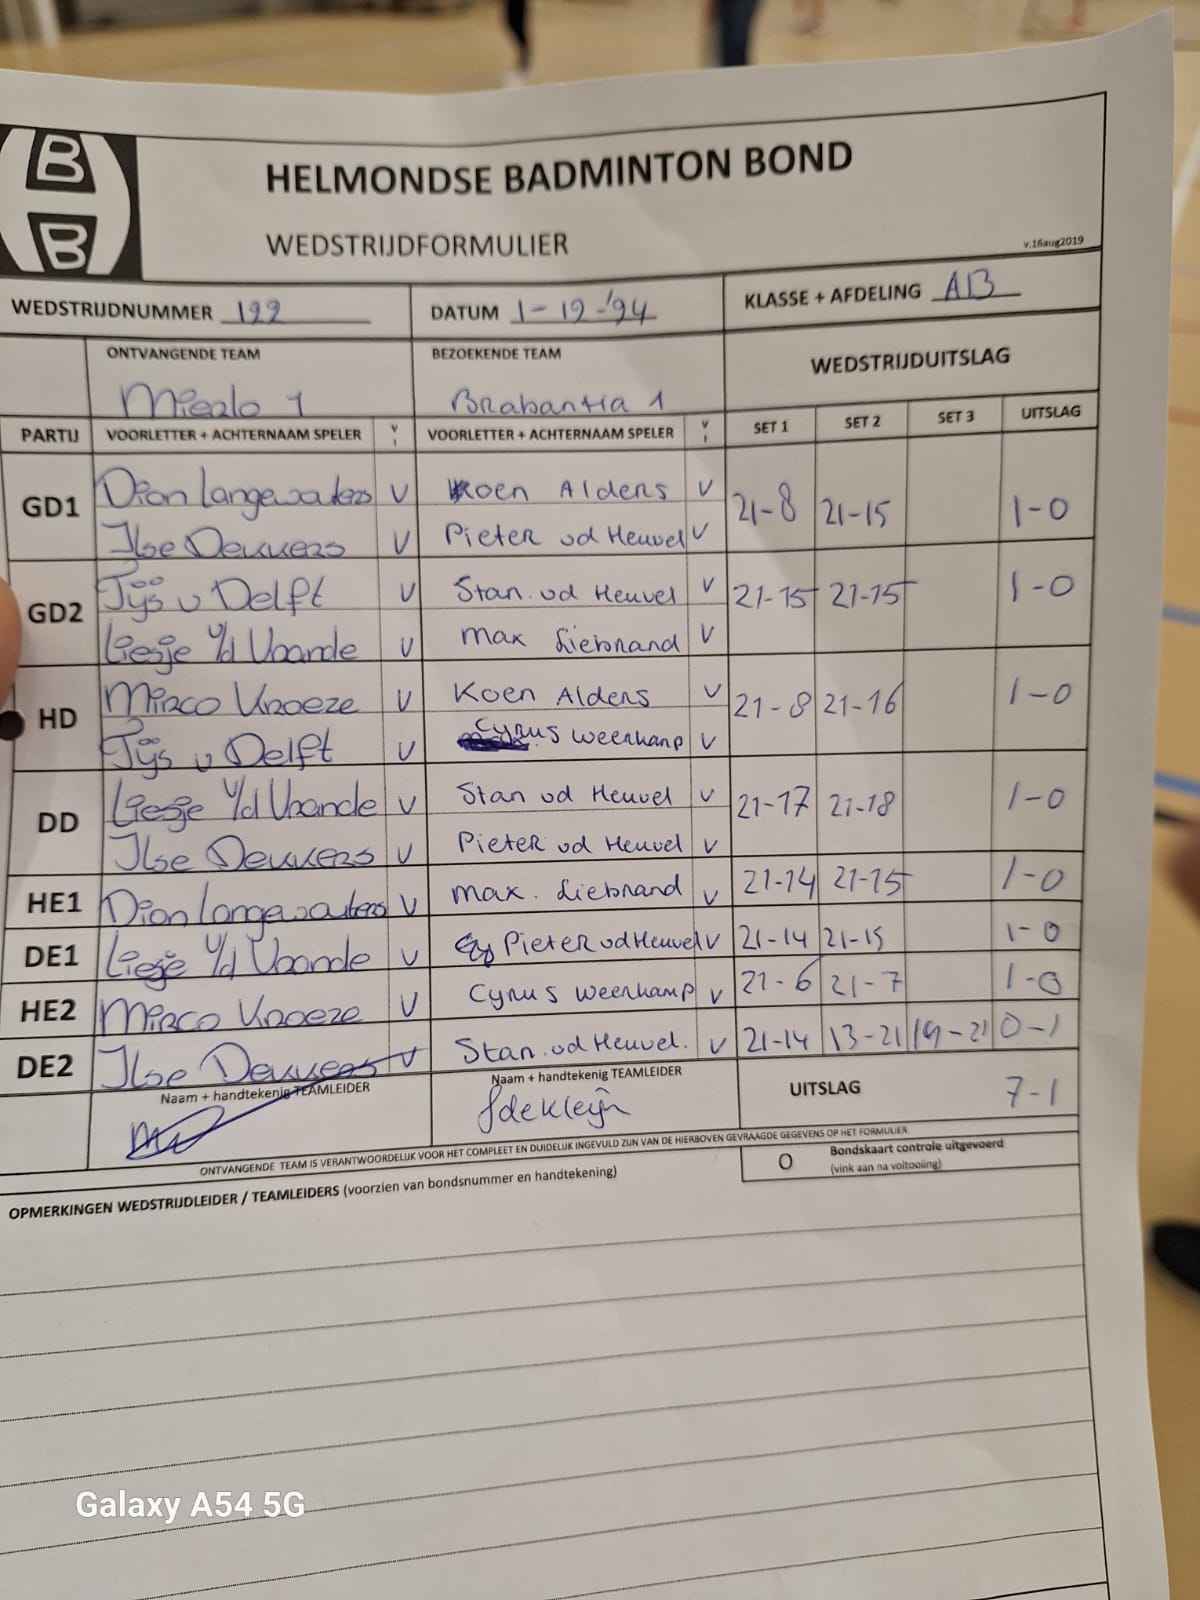 B
B
HELMONDSE BADMINTON BOND
WEDSTRIJDFORMULIER
v.16aug2019
WEDSTRIJDNUMMER 122 DATUM 1-12-'24 KLASSE + AFDELING AB
ONTVANGENDE TEAM BEZOEKENDE TEAM WEDSTRIJDUITSLAG
Mierlo 1 Brabantia 1
PARTIJ VOORLETTER + ACHTERNAAM SPELER V I VOORLETTER + ACHTERNAAM SPELER V I SET 1 SET 2 SET 3 UITSLAG
GD1 Dion Langewouters V Koen Alders V 21-8 21-15 1-0
Ilse Dekkers V Pieter vd Heuvel V
GD2 Tijs v Delft V Stan vd Heuvel V 21-15 21-15 1-0
Liesje v/d Voorde V Max Liebrand V
HD Mirco Kroeze V Koen Alders V 21-8 21-16 1-0
Tijs v Delft V Cyrus Weerkamp V
DD Liesje v/d Voorde V Stan vd Heuvel V 21-17 21-18 1-0
Ilse Dekkers V Pieter vd Heuvel V
HE1 Dion Langewouters V Max. Liebrand V 21-14 21-15 1-0
DE1 Liesje v/d Voorde V Pieter vd Heuvel V 21-14 21-15 1-0
HE2 Mirco Kroeze V Cyrus Weerkamp V 21-6 21-7 1-0
DE2 Ilse Dekkers V Stan vd Heuvel. V 21-14 13-21 19-21 0-1
Naam + handtekenig TEAMLEIDER Naam + handtekenig TEAMLEIDER UITSLAG 7-1
SdeKleijn
ONTVANGENDE TEAM IS VERANTWOORDELIJK VOOR HET COMPLEET EN DUIDELIJK INGEVULD ZIJN VAN DE HIERBOVEN GEVRAAGDE GEGEVENS OP HET FORMULIER.
O Bondskaart controle uitgevoerd
(vink aan na voltooiing)
OPMERKINGEN WEDSTRIJDLEIDER / TEAMLEIDERS (voorzien van bondsnummer en handtekening)
Galaxy A54 5G